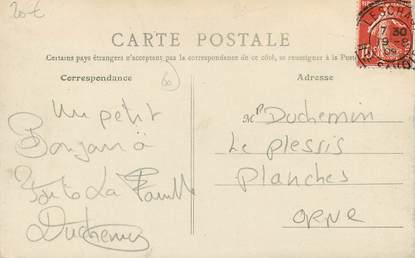 20€
CARTE POSTALE
Certains pays étrangers n'acceptant pas la correspondance de ce côté, se renseigner à la Poste
Correspondance
Adresse
Un petit
Bonjour à
Toute La Famille
Duchemin
Mr Duchemin
Le Plessis
Planches
orne
7 30
19 -9
09